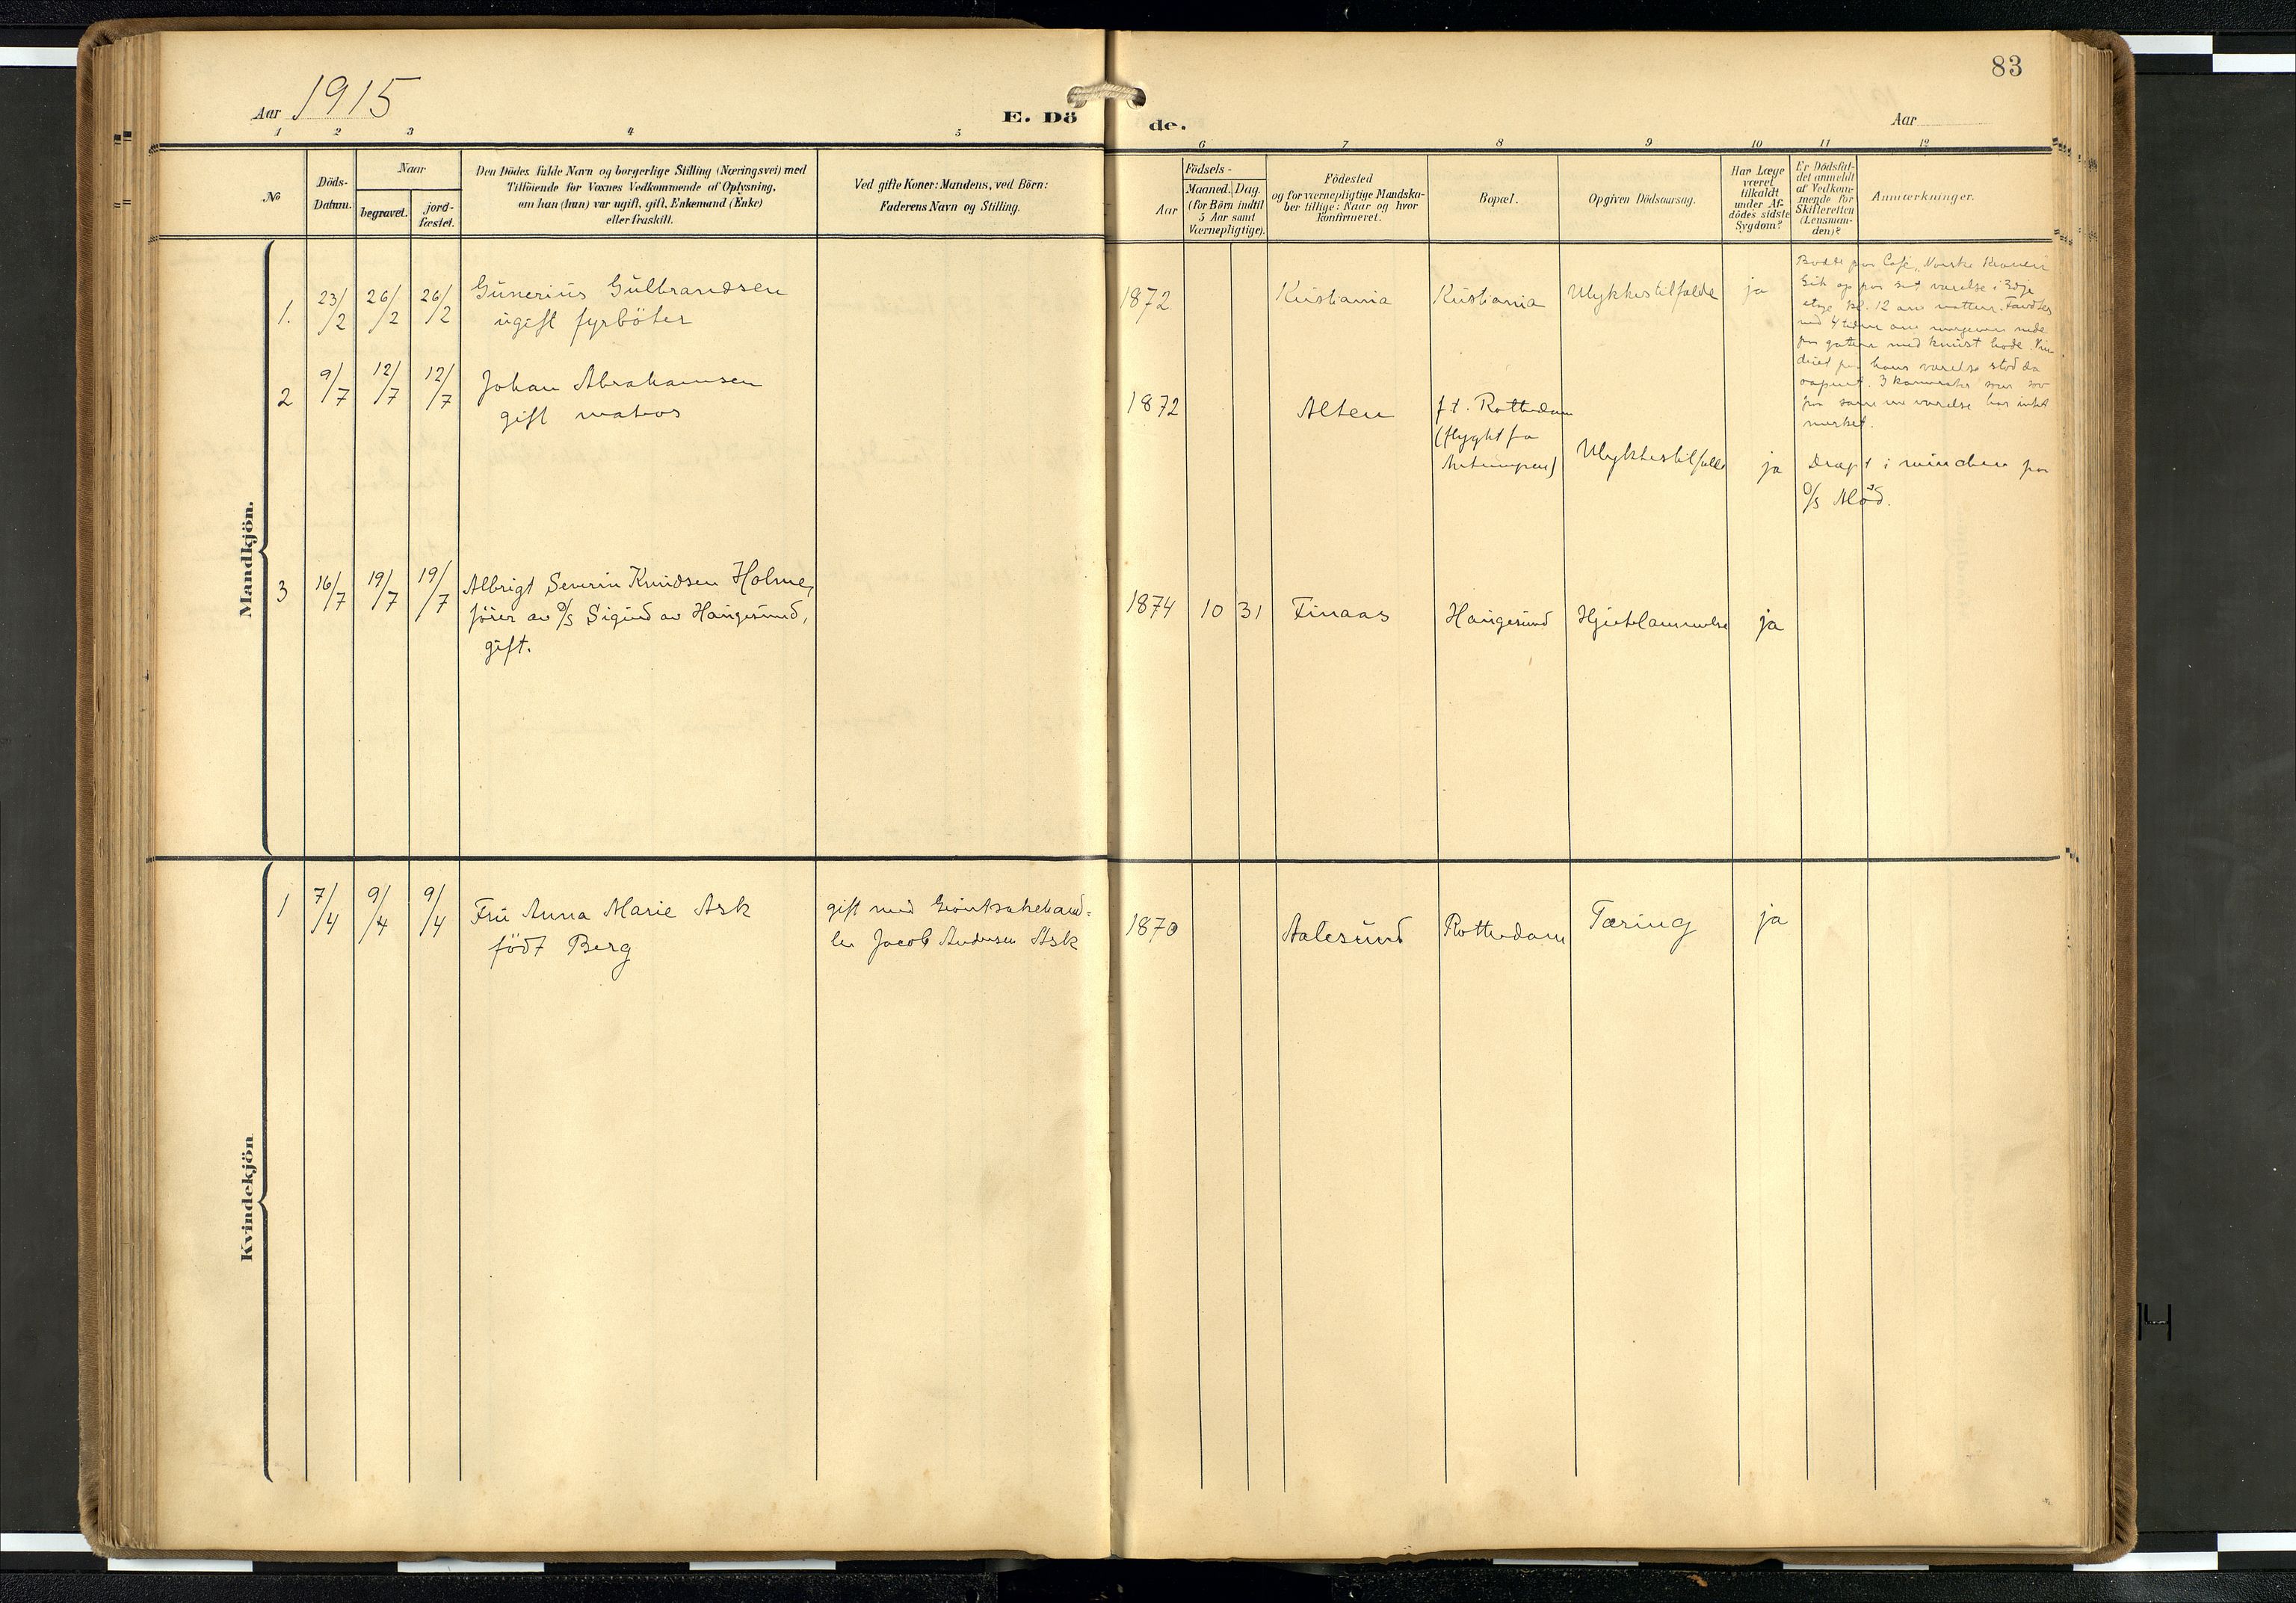 83
Aar 1915
E. Dö
de.
Aar
1 2 3 4 5
6 7 8 9 10 11 12
No
Döds-
Datum.
Naar
begravet.
jord-
fæstet.
Den Dödes fulde Navn og borgerlige Stilling (Næringsvei) med
Tilföiende for Voxnes Vedkommende af Oplysning,
om han (hun) var ugift, gift, Enkemand (Enke)
eller fraskilt.
Ved gifte Koner: Mandens, ved Börn:
Faderens Navn og Stilling.
Födsels-
Aar
Maaned. Dag.
(for Börn indtil
5 Aar samt
Værnepligtige).
Födested
og for værnepligtige Mandska-
ber tillige: Naar og hvor
konfirmeret.
Bopæl.
Opgiven Dödsaarsag.
Har Læge
været
tilkaldt
under Af-
dödes sidste
Sygdom?
Er Dödsfal-
det anmeldt
af Vedkom-
mende for
Skifteretten
(Lensman-
den)?
Anmærkninger.
Mandkjön.
1. 23/2 26/2 26/2 Gunerius Gulbrandsen
ugift fyrböter
1872 Kristiania Kristiania Ulykkestilfælde ja
Bodde paa Café, Norske Kronen
Gik op paa sit værelse i 3dje
etage kl. 12 om natten. Fandtes
ved 4 tiden om morgenen nede
paa gaten med knust hode. Vin
duet paa hans værelse stod da
aapent. 3 kamerater som sov
paa samme værelse har intet
merket.
2 9/7 12/7 12/7 Johan Abrahamsen
gift matros
1872 Alten f.t. Rotterdam
(flygtet fra
Antwerpen)
Ulykkestilfælde ja Dræpt i minen paa
D/S Alöd.
3 16/7 19/7 19/7 Albrigt Severin Knudsen Holme,
förer av D/S Sigurd av Haugesund,
gift.
1874 10 31 Finaas Haugesund Hjertelammelse ja
Kvindekjön
1 7/4 9/4 9/4 Fru Anna Marie Ask
födt Berg
gift med Grönsakehand-
ler Jacob Andersen Ask
1870 Aalesund Rotterdam Tæring ja